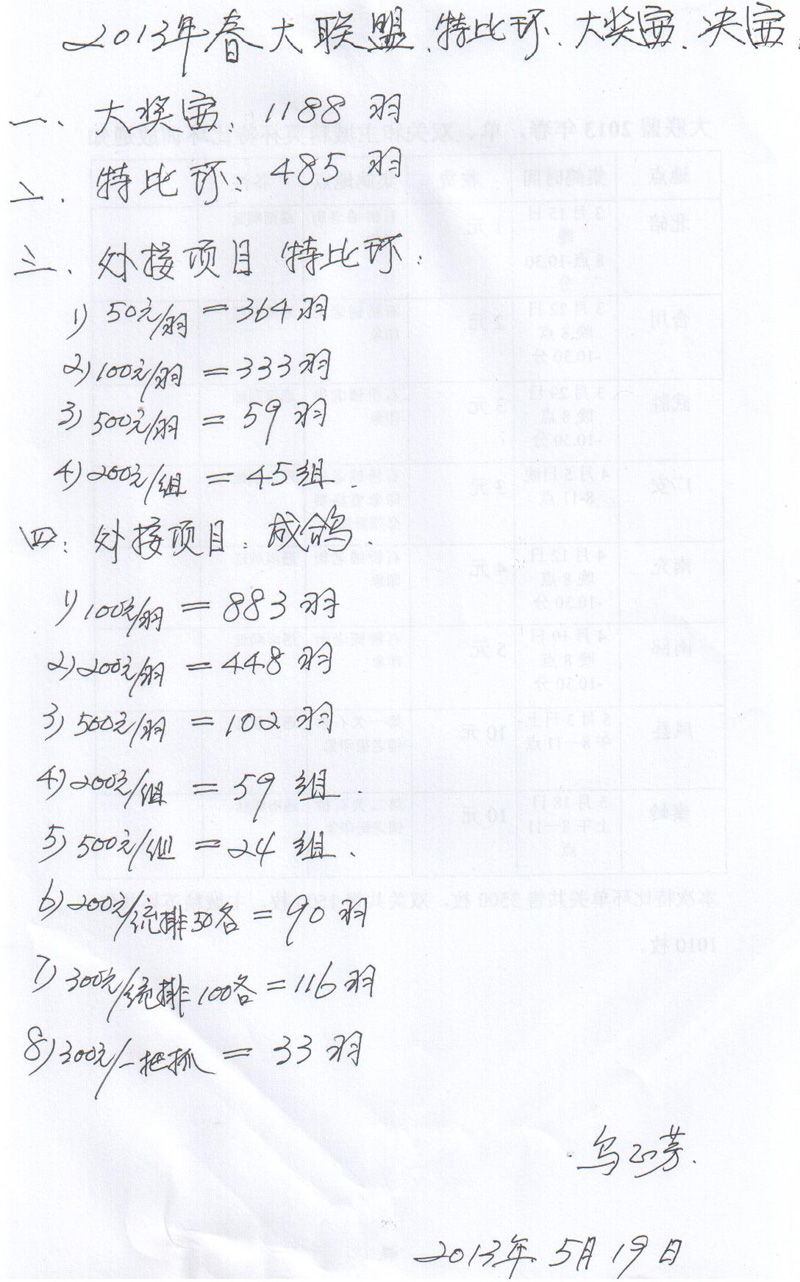 2013年春大联盟、特比环、大奖赛、决赛
一、大奖赛：1188羽
二、特比环：485羽
三、外接项目 特比环：
1) 50元/羽 = 364羽
2) 100元/羽 = 333羽
3) 500元/羽 = 59羽
4) 200元/组 = 45组
四：外接项目：成鸽.
1) 100元/羽 = 883羽
2) 200元/羽 = 448羽
3) 500元/羽 = 102羽
4) 200元/组 = 59组.
5) 500元/组 = 24组.
6) 200元/统排50名 = 90羽
7) 300元/统排100名 = 116羽
8) 300元/一把抓 = 33羽
2013年5月19日